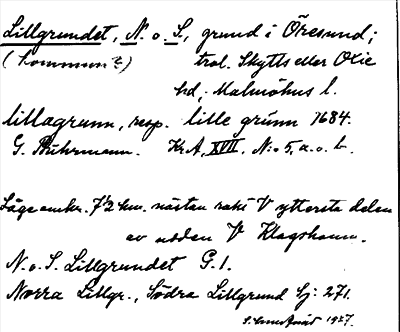 Lillgrundet, N. o. S., grund i Öresund;
(kommun?) trol. Skytts eller Oxie
hd, Malmöhus l.
lillagrunn, resp. lille grünn 1684.
G. Buhrmann. Kr. A, XVII, N:o 5, a. o. b.
Läge omkr. 7½ km. nästan rakt V yttersta delen
av udden V Klagshamn.
N. o. S. Lillgrundet G. 1.
Norra Lillgr., Södra Lillgrund Sj: 271.
1927.